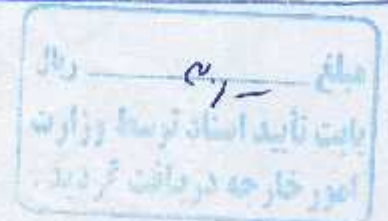 مبلغ ریال
بابت تأیید اسناد توسط وزارت
امور خارجه دریافت گردید .